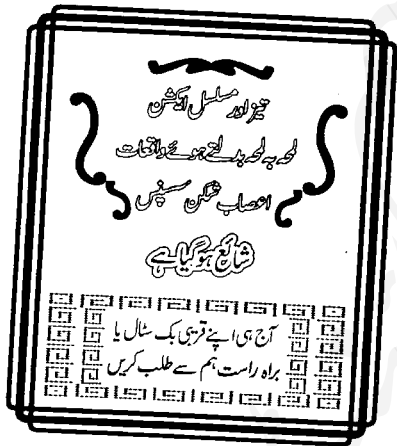 تیز اور مسلسل ایکشن
لمحہ بہ لمحہ بدلتے ہوئے واقعات
اعصاب شکن سسپنس
شائع ہوگیا ہے
آج ہی اپنے قریبی بک سٹال یا
براہ راست ہم سے طلب کریں